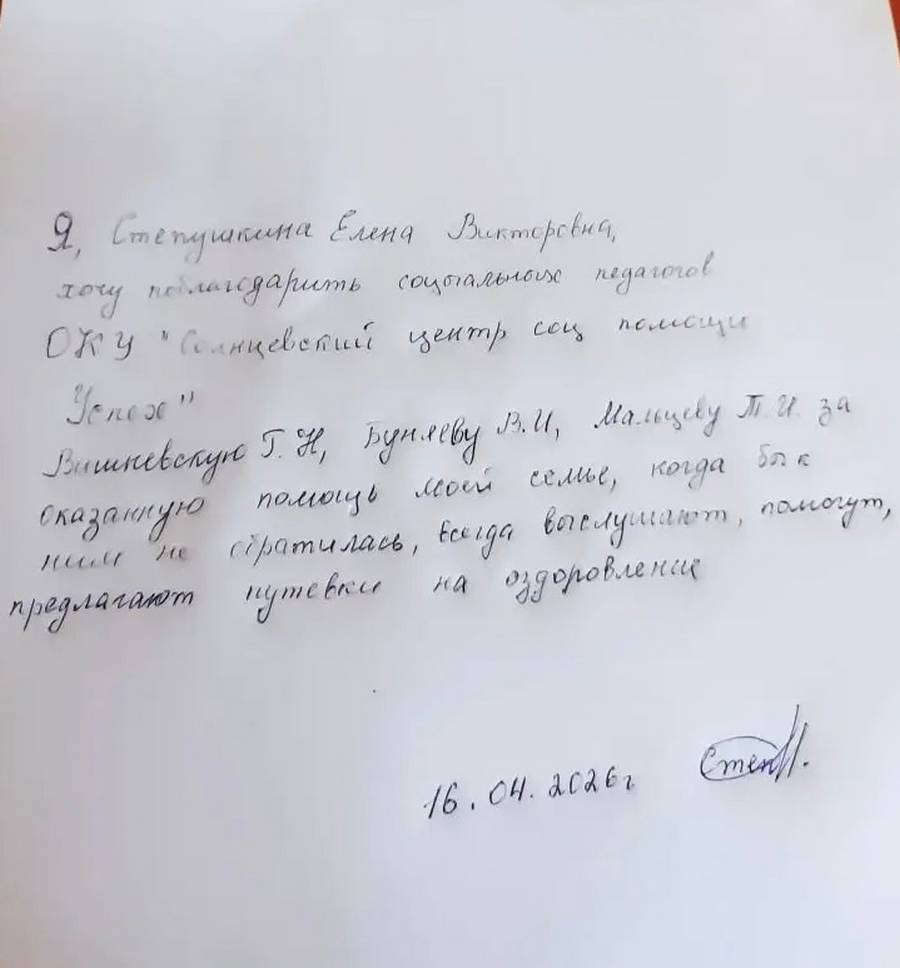 Я, Степушкина Елена Викторовна,
хочу поблагодарить социальных педагогов
ОКУ "Солнцевский центр соц помощи
Успех"
Вишневскую Г.Н, Буняеву В.И, Мальцеву Т.И. за
оказанную помощь моей семье, когда бы к
ним не обратилась, всегда выслушают, помогут,
предлагают путевки на оздоровление
16.04.2026г Степ